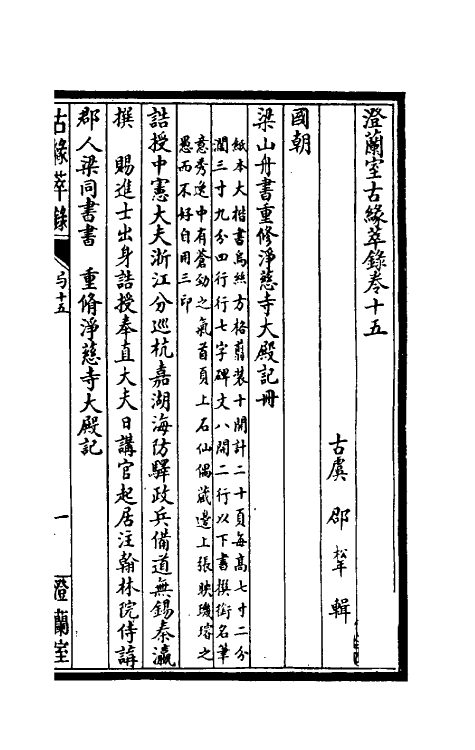 澄蘭室古緣萃錄卷十五
古虞 邵 松年 輯
國朝
梁山舟書重修淨慈寺大殿記冊
紙本大楷書烏絲方格翦裝十開計二十頁每高七寸二分
濶三寸九分四行行七字碑文八開二行以下書撰銜名筆
意秀逸中有蒼勁之氣首頁上石仙偶藏邊上張映璣瑢之
愚而不好自用三印
誥授中憲大夫浙江分巡杭嘉湖海防驛政兵備道無錫秦瀛
撰 賜進士出身誥授奉直大夫日講官起居注翰林院侍講
郡人梁同書書 重脩淨慈寺大殿記
古緣萃錄 卷十五 一 澄蘭室